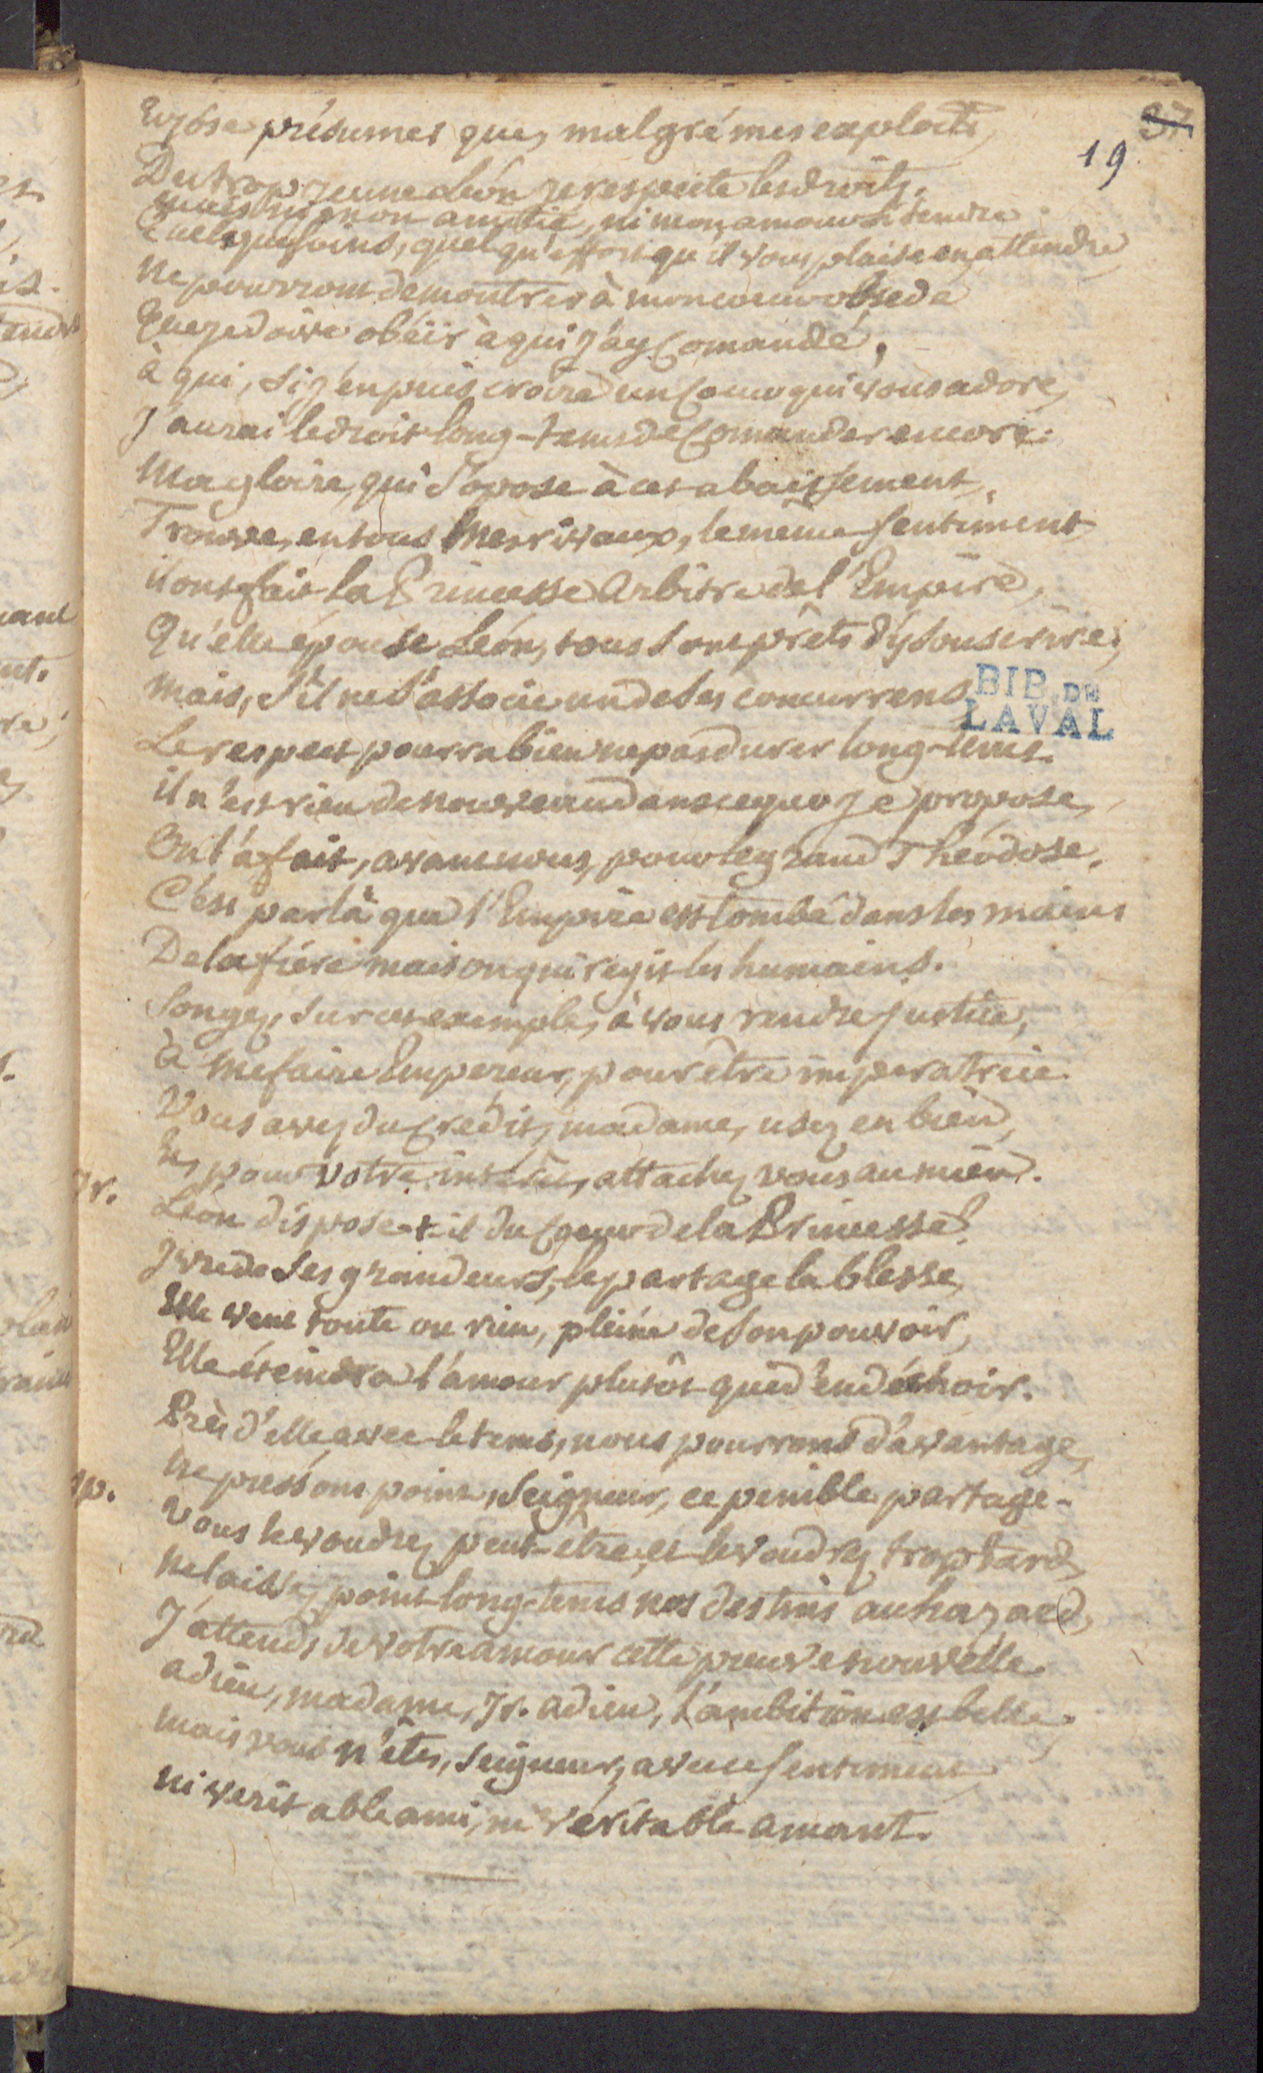 37
19
Eujose présumer que, malgré mes exploits,
Du trop jeune Léon je respecte les droits.
mais ni mon amitié, ni mon amour si tendre
Quelque soins, quelqu'effort qu'il vous plaise en attendre
Ne pourront demontrer à mon coeur obsedé
Que je doive obéïr à qui j'ay Comandé,
à qui, si j'en puis croire un Coeur qui vous adore,
J'aurai le droit long-tems de Comander encore.
Ma gloire, qui s'opose à cet abaissement,
Trouve, en tous mes rivaux, le même sentiment
ils ont fait la Princesse Arbitre de l'Empire,
Qu'elle épouse Léon, tous sont prêts d'y souscrire;
mais, s'il ne s'associe un de ses concurrens
Le respect pourra bien ne pas durer long-tems.
il n'est rien de nouveau dans ce que je propose,
On l'a fait, avant nous, pour le grand Théodose.
C'est par là que l'Empire est tombé dans les mains
De la fiére maison qui régit les humains.
Songez, sur cet exemple, à vous rendre justice,
à me faire Empereur, pour être imperatrice
Vous avez du Crédit, madame, usez en bien,
Et, pour votre intérêt, attachez vous au mien.
Ir.
Léon dispose-t-il du Coeur de la Princesse?
Ivre de ses grandeurs, le partage la blesse,
Elle veut toute ou rien, pleine de son pouvoir,
Elle éteindra l'amour plutôt que d'en déchoir.
Près d'elle, avec le tems, nous pourrons d'avantage,
Ne pressons point, Seigneur, ce penible partage.
sp.
Vous le voudrez peut-être, et le voudrez trop tard,
Ne laissez point long-tems nos destins au hazard,
J'attends de votre amour cette preuve nouvelle
adieu, madame, Ir. adieu, l'ambition est belle,
mais vous n'êtes, Seigneur, avec ce sentiment
ni veritable ami, ni veritable amant.
BIB. DE
LAVAL